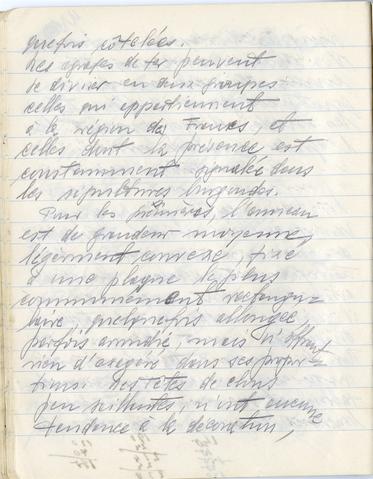 quefois côtelées.
Les agrafes de fer peuvent
se diviser en deux groupes
celles qui appartiennent
à la région des Francs, et
celles dont la présence est
constamment signalée dans
les sépultures burgondes.
Pour les premières, l'anneau
est de grandeur moyenne,
légèrement convexe, fixé
à une plaque le plus
communément rectangu-
laire, quelquefois allongée,
parfois arrondie, mais n'offrant
rien d'exagéré dans ses propor-
tions. Les têtes de clous
peu saillantes, n'ont aucune
tendance à la décoration,